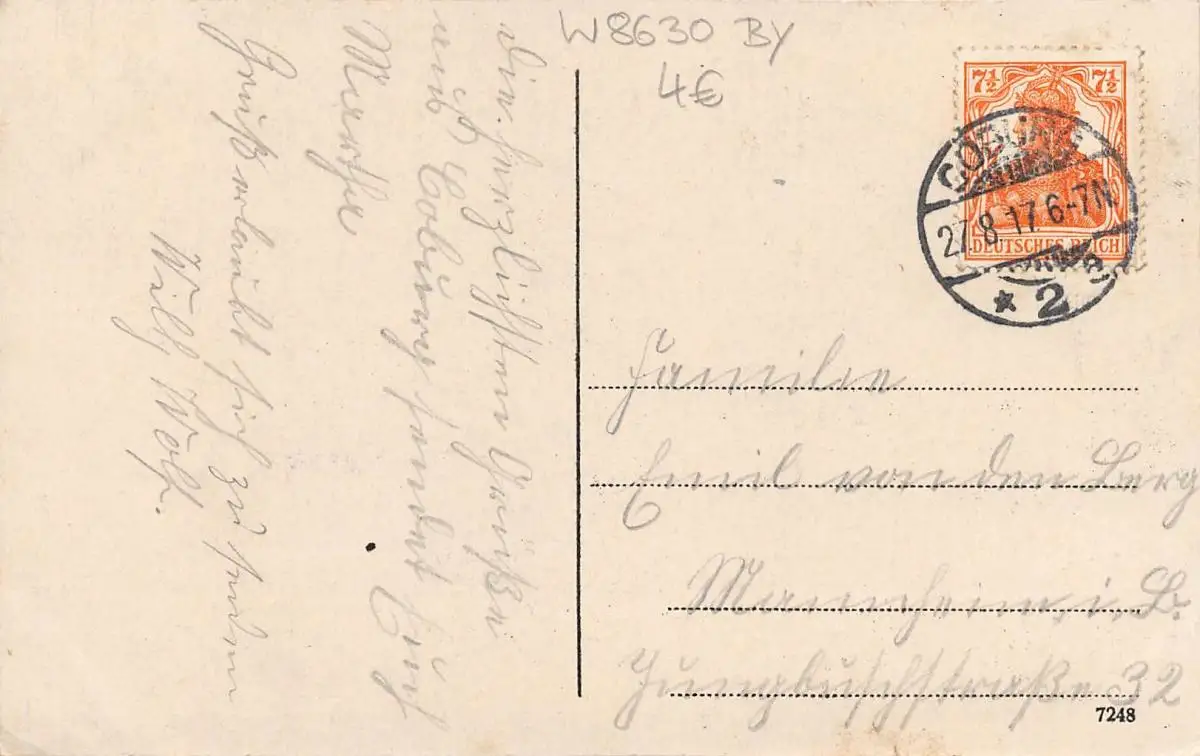 W 8630 BY
4€
Die herzlichsten Grüße
aus Coburg sendet Euch
Marthe
Gruß erlaubt sich zu senden
Willy Wolf.
7½ 7½
DEUTSCHES REICH
COBURG
27.8.17.6-7N
* 2
Familie
Emil von den Berg
Mannheim i. B.
Jungbuschstraße 32
7248